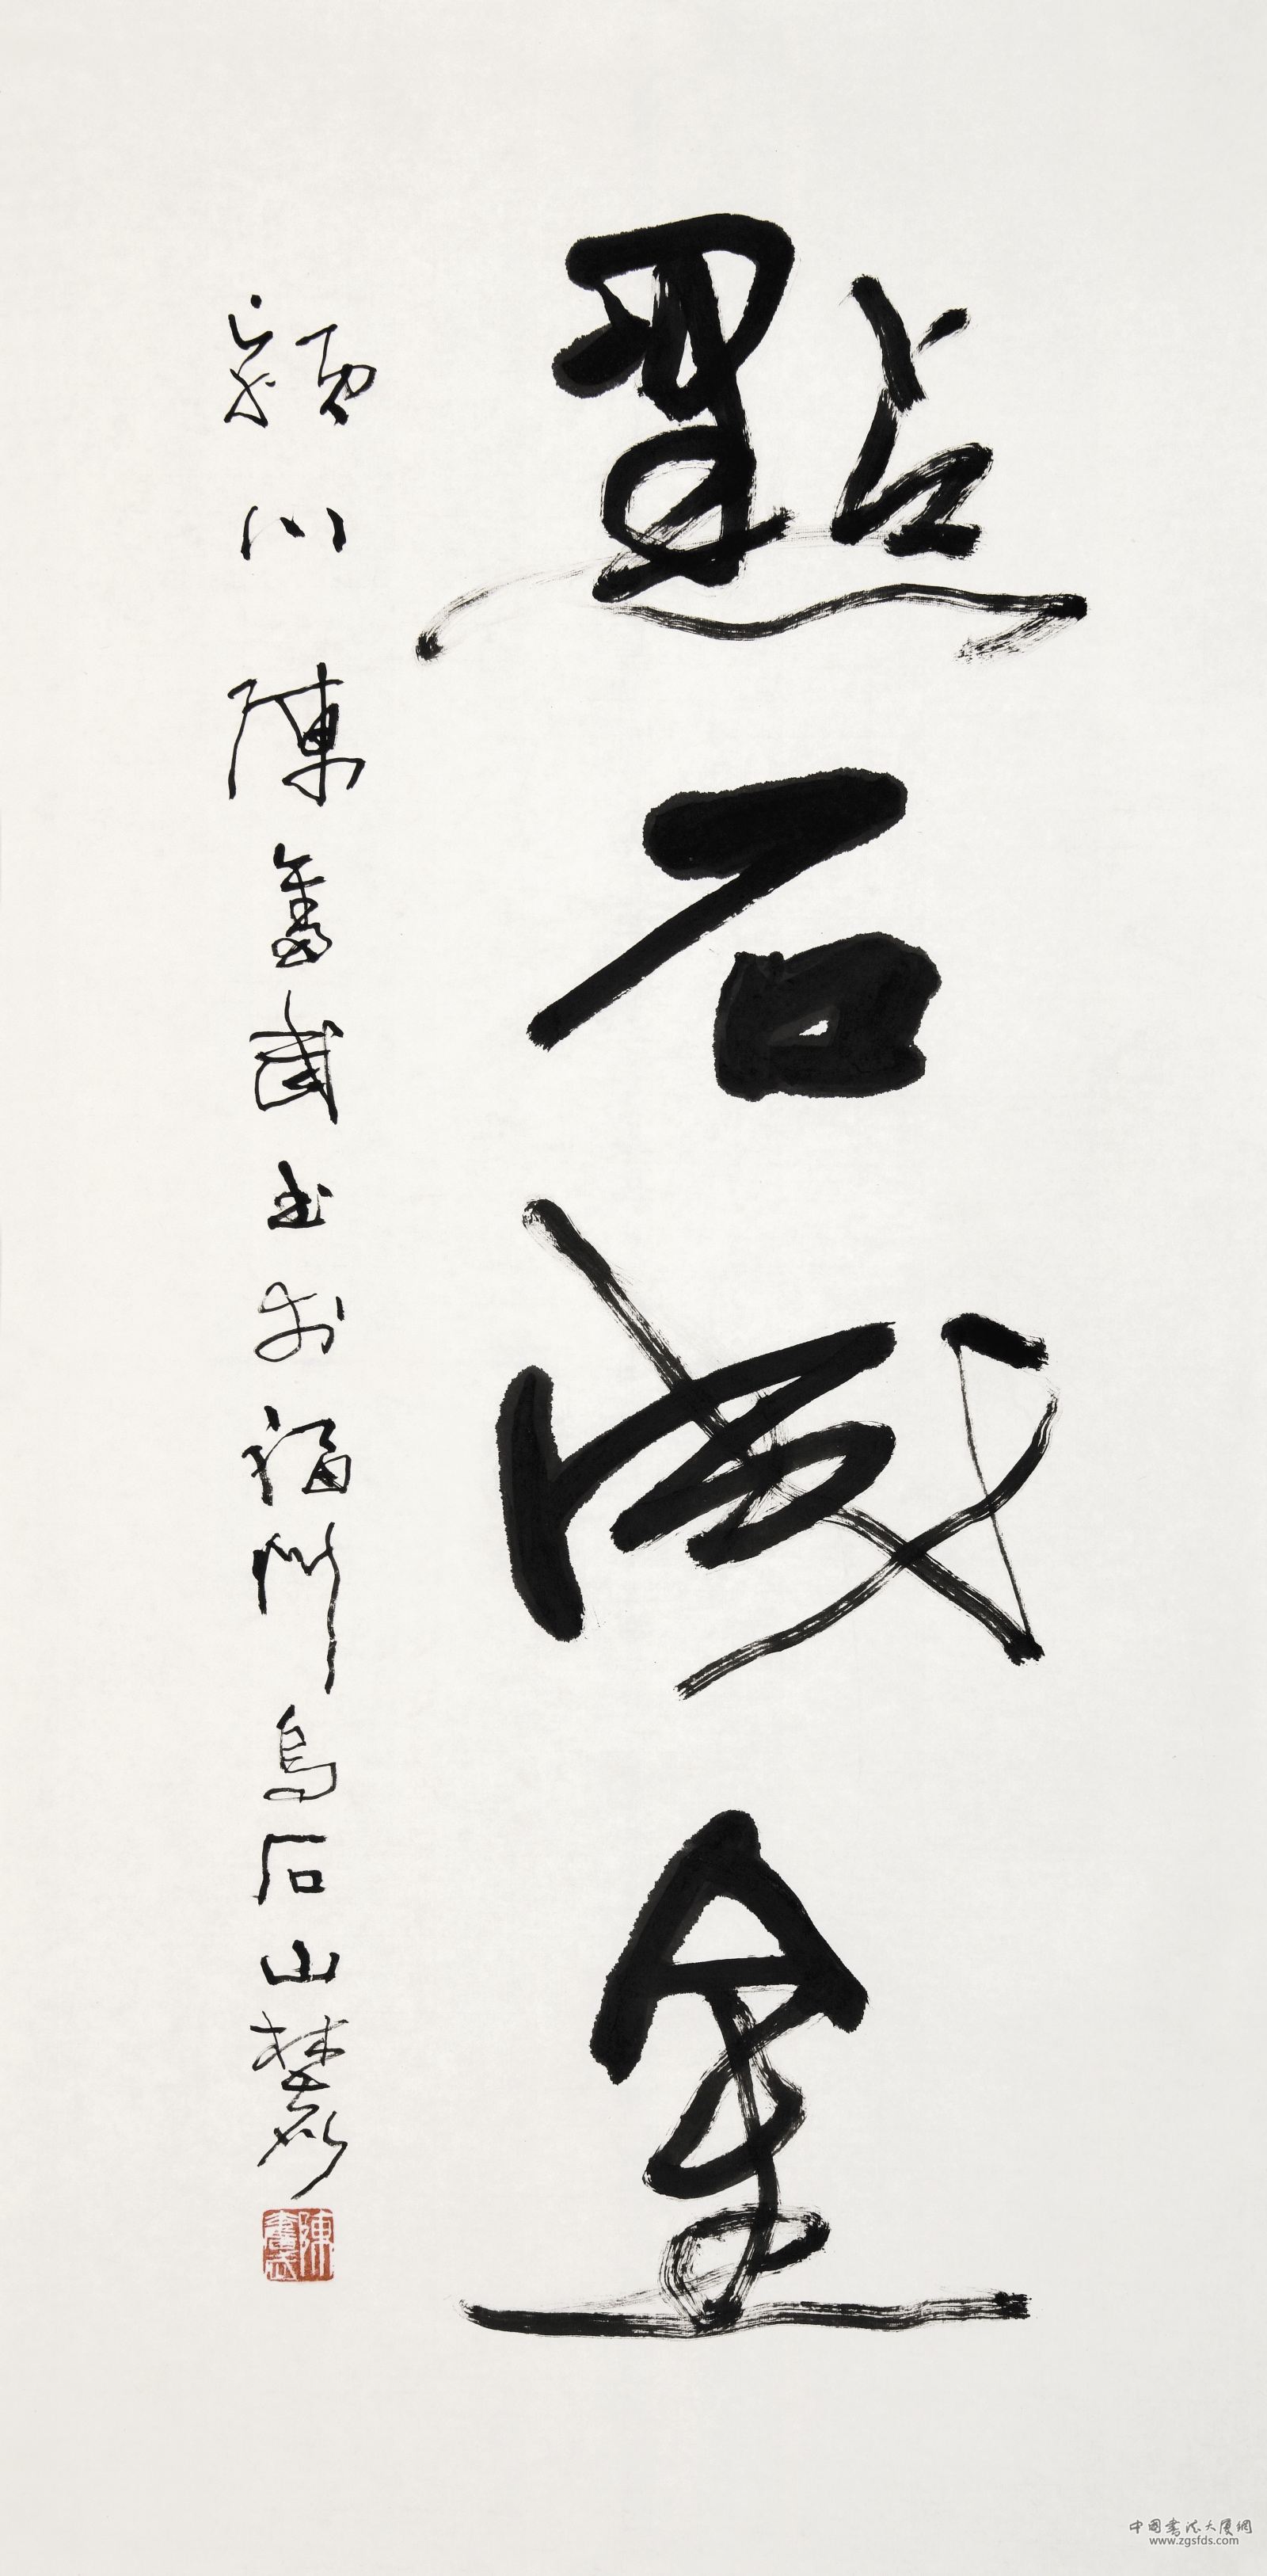 點石成金
潁川陳奮武书於福州烏石山麓
陳奮武
中国书法大厦網
www.zgsfds.com